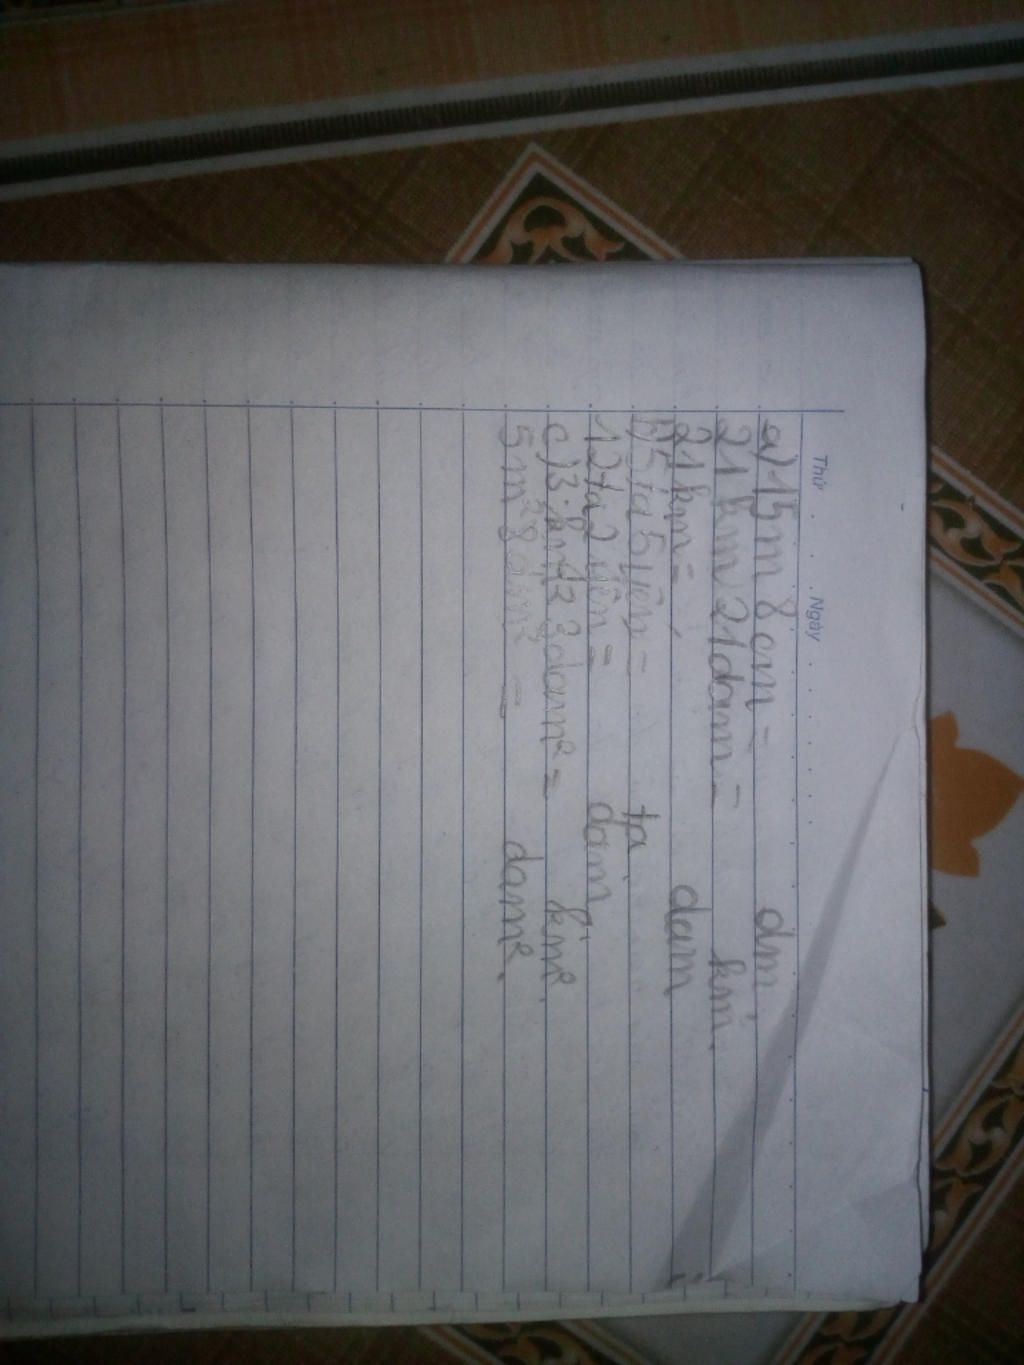 Thứ Ngày
a) 15m 8cm = dm.
21 km 21dam = km.
21km = dam
b) 5 tạ 5 yến = tạ.
12 tạ 2 yến = dam.
c) 3 km² 2 3dam² = km².
5m² 8dm² = dam².